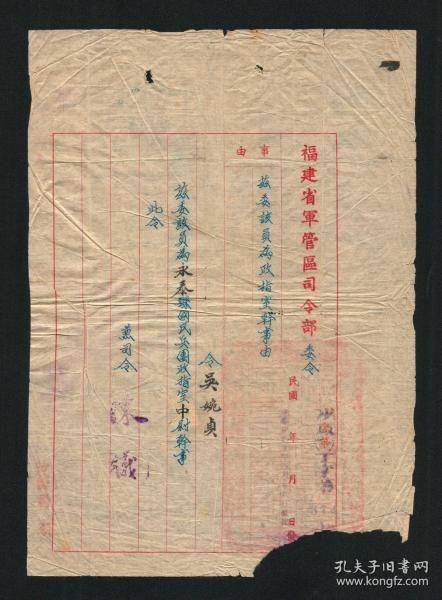 福建省軍管區司令部 委令
民國 年 月 日發
事由
茲委該員為政指室幹事由
令吳婉貞
茲委該員為永泰縣國民兵團政指室中尉幹事
此令
兼司令
孔夫子旧书网
www.kongfz.com